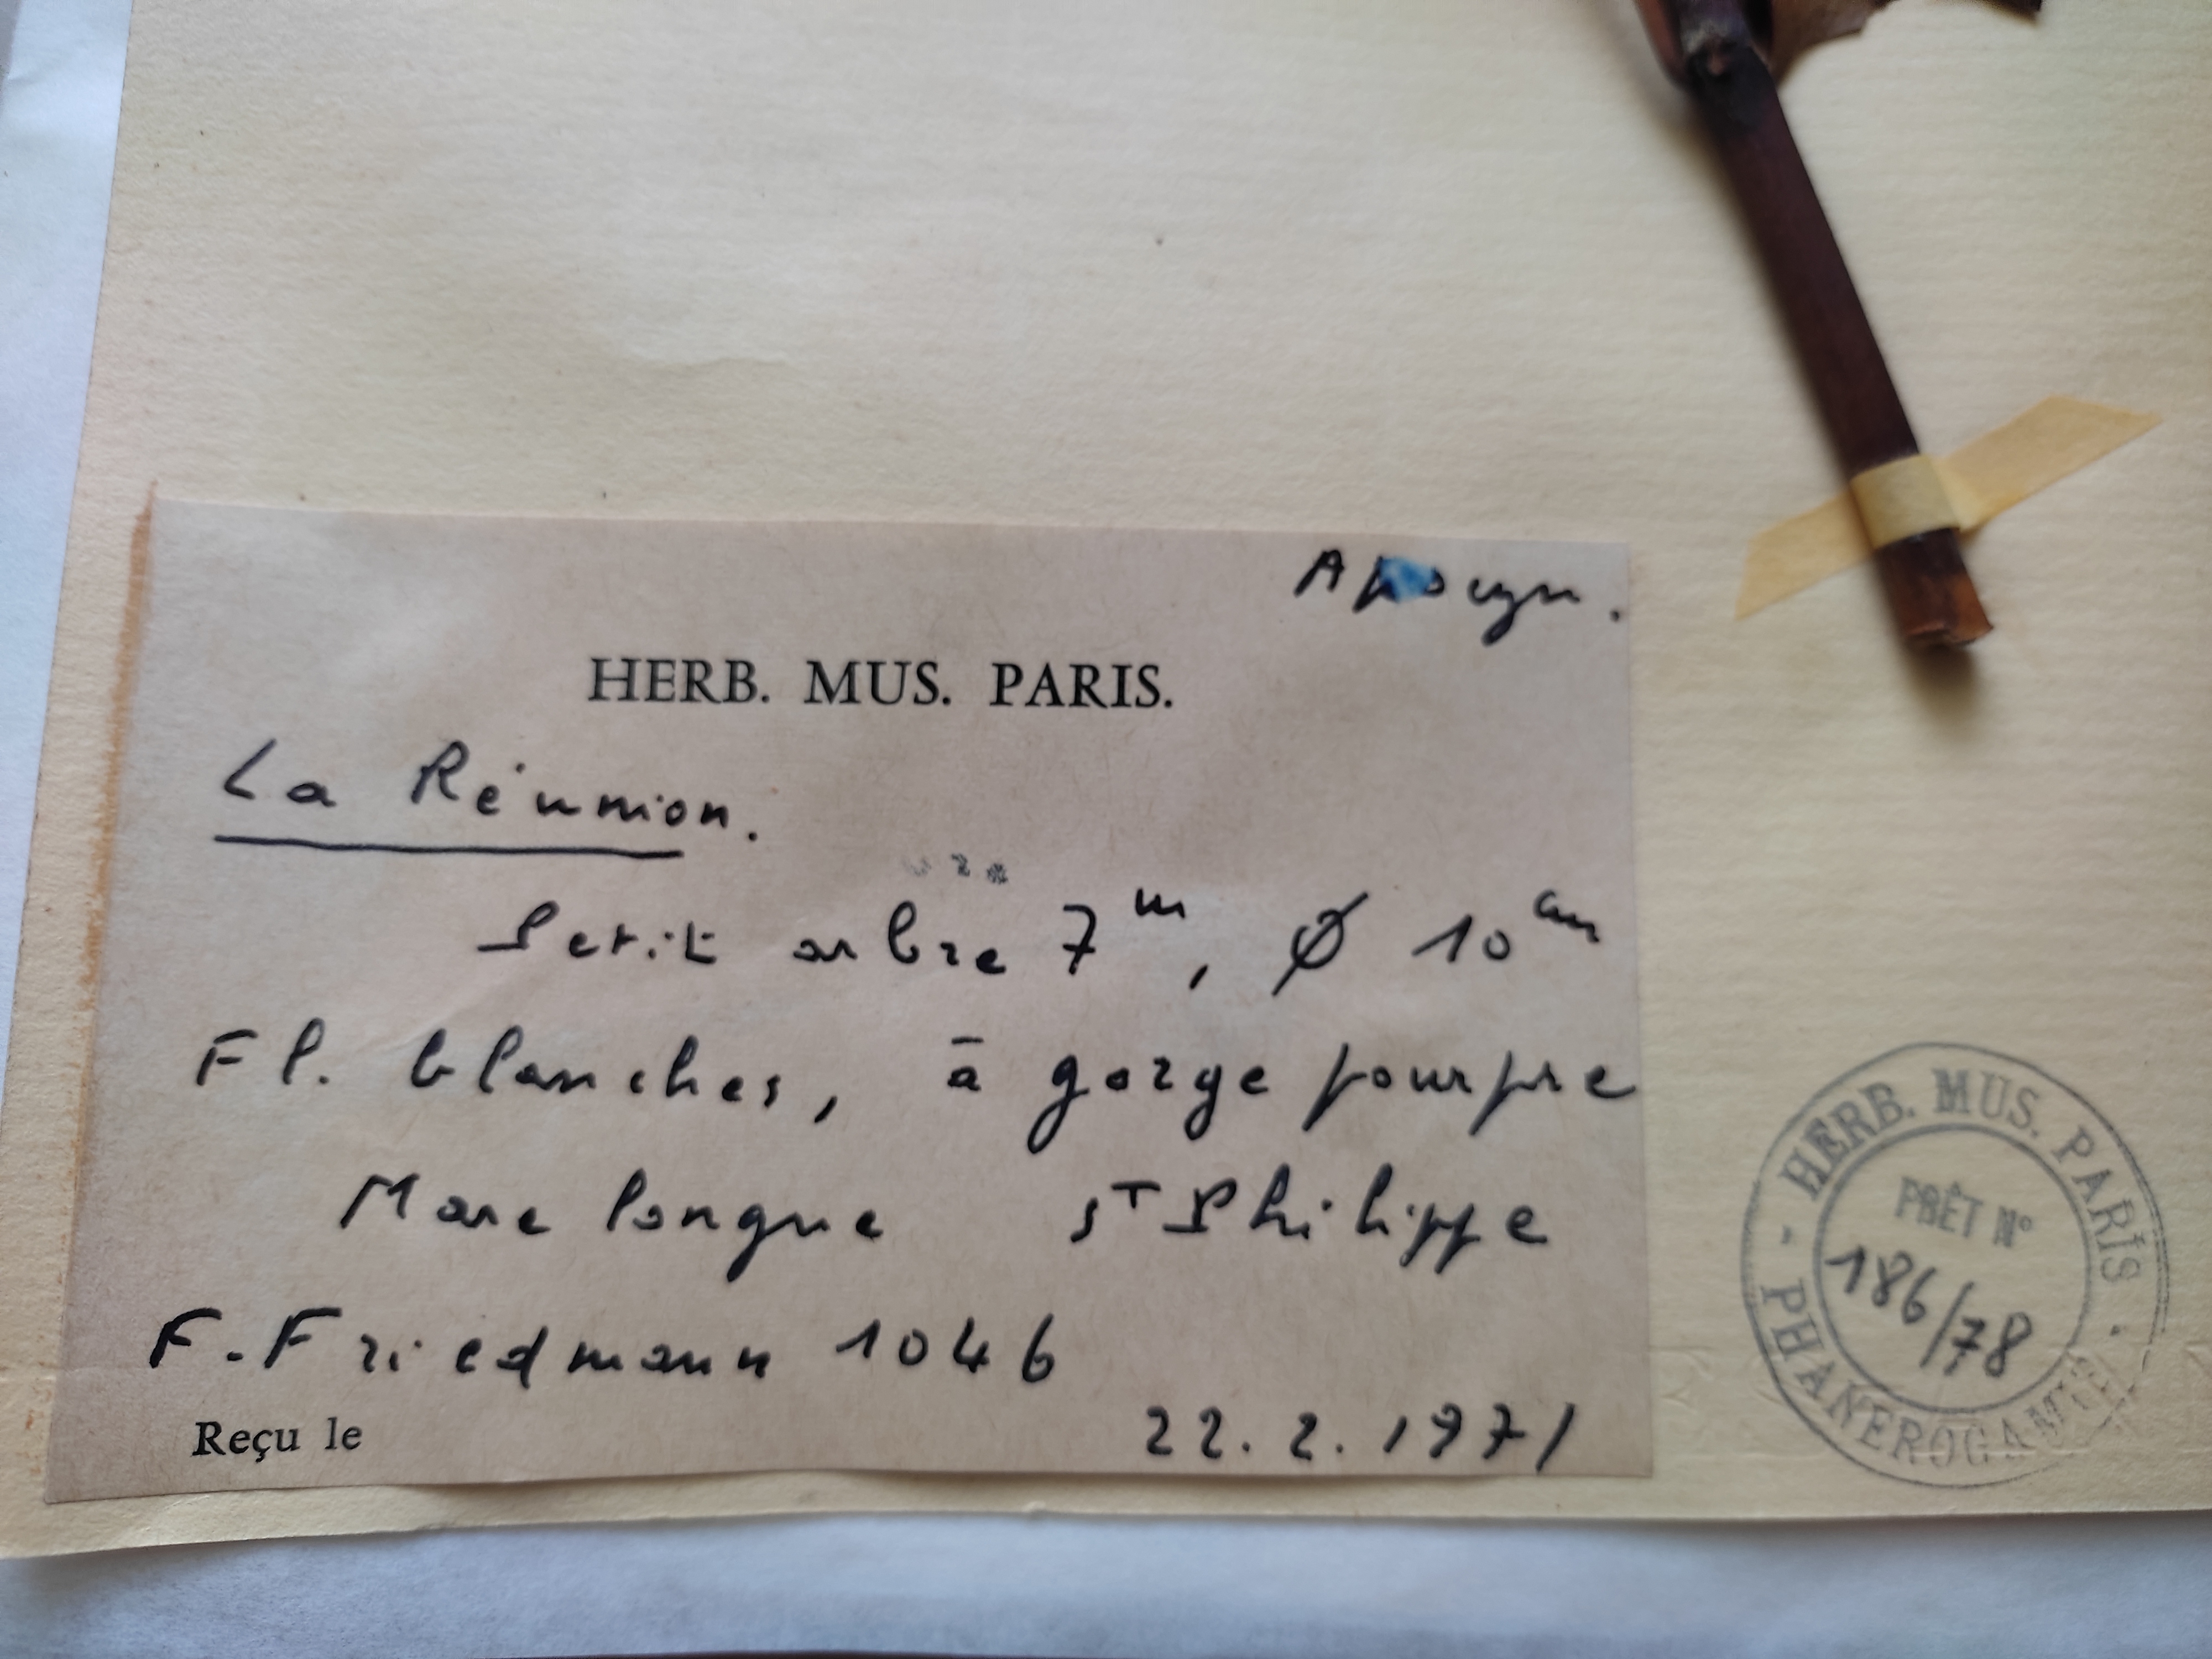 Apocyn.
HERB. MUS. PARIS.
La Réunion.
Petit arbre 7 m, Ø 10 cm
Fl. blanches, à gorge pourpre
Mare longue St Philippe
F. Friedmann 1046
22.2.1971
Reçu le
HERB. MUS. PARIS.
PRÊT N°
186/78
PHANÉROGAMIE